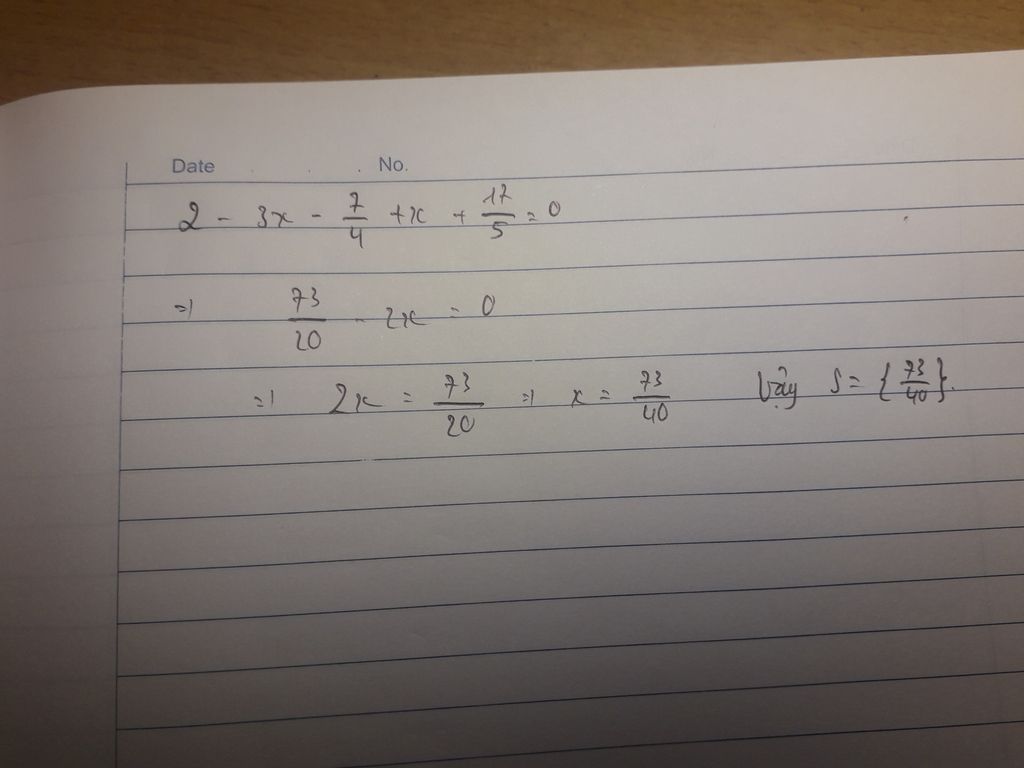 Date . . . No.
2 - 3x - 7/4 + x + 17/5 = 0
=> 73/20 - 2x = 0
=> 2x = 73/20 => x = 73/40 Vậy S = {73/40}.